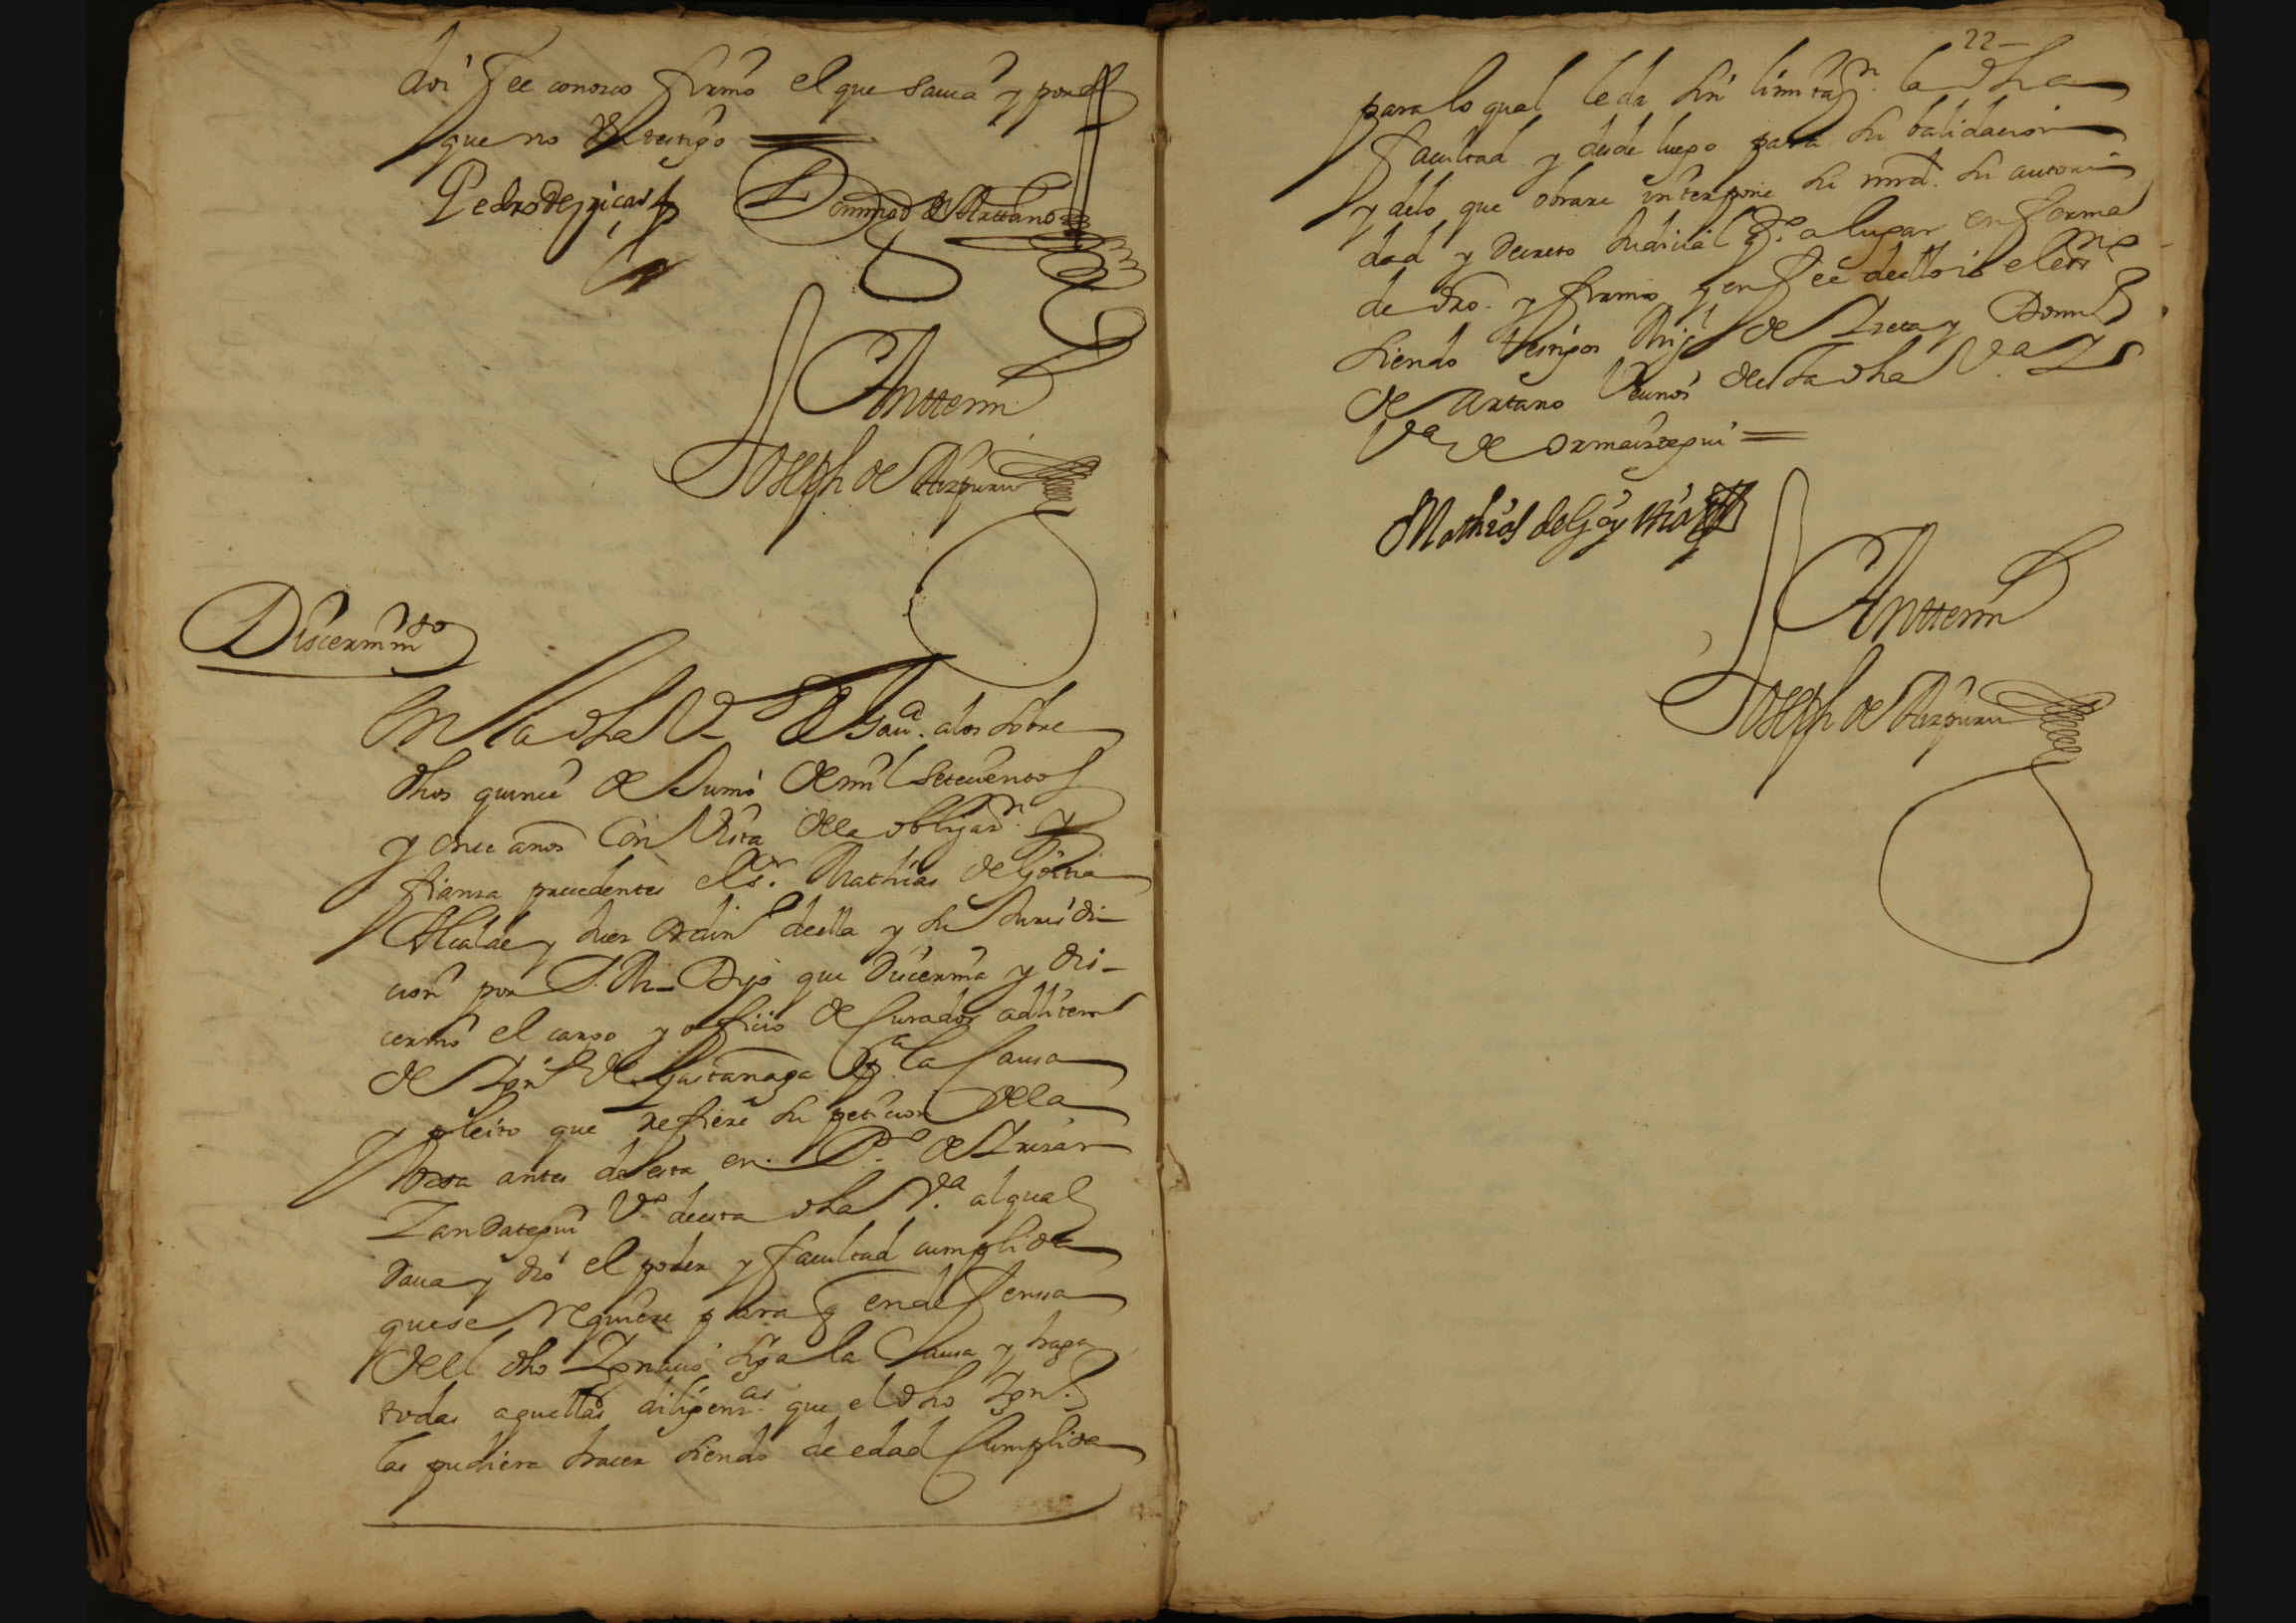 doi fee conosco firmo el que savia y por el
que no Un testigo
Pedro de yricar Domingo de Arttano
Anttemi
Joseph de Aizpuru
Discernimto
En la dha Va de Sava. a los sobre
dhos quince de Junio de mil setecientos
y once años Con Vista de la obligaon. y
fianza precedentes el Sr. Mathias de Goitia
Alcalde y Juez ordino de ella y su Jurisdi-
cion por S. M. Dijo que discernia y dis-
cernio el cargo y oficio de Curador adlitem
de Ygno de Gastañaga Pa. la Causa
y pleito que refiere su peticion de la
oja antes de esta en Po. de Yrizar
Zandategui Vo. de esta dha Va. al qual
dava y dio el poder y facultad cumplida
que se requiere para q en defensa
de el dho Ygnacio siga la Causa y haga
todas aquellas diligenzas. que el dho Ygno.
las pudiera hacer siendo de edad Cumplida
22-
para lo qual le da sin limitaon. la dha
facultad y desde luego para su balidacion
y de lo que obrare interpone su mrd. su autori
dad y Decreto Judicial qto. a lugar en forma
de dro. y firmo y en fee de ello io el essno
siendo testigos Migl de Yreta y Domo
de Artano Vecinos de esta dha Va. Zs
Va de ormaiztegui =
Mathias de Goytia
Anttemi
Joseph de Aizpuru